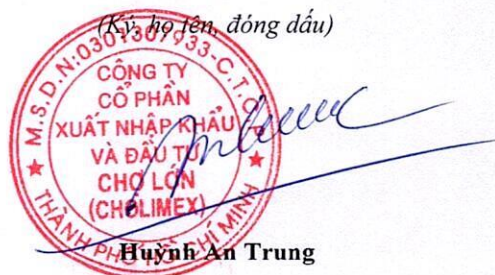 (Ký, họ tên, đóng dấu)
M.S.D.N:0301307933-C.T.C.P
CÔNG TY
CỔ PHẦN
XUẤT NHẬP KHẨU
VÀ ĐẦU TƯ
CHỢ LỚN
(CHOLIMEX)
THÀNH PHỐ HỒ CHÍ MINH
Huỳnh An Trung